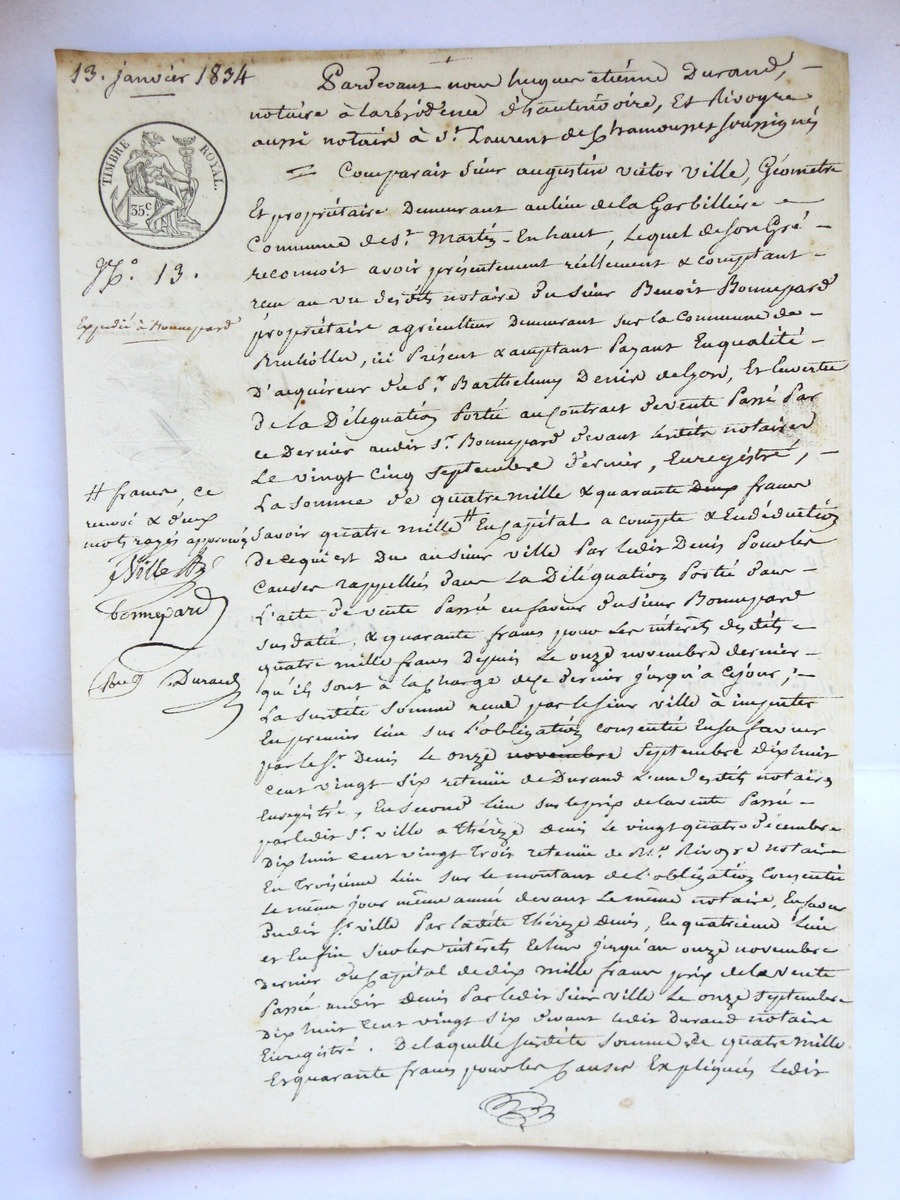 13. janvier 1834
TIMBRE ROYAL.
35c
N.o 13.
Expedié à Bonnepard
# francs, ce
renvoi & deux
mots rayés approuvés
Ville
bonnepard
Durand
Pardevant nous hugues étiénne Durand,
notaire à la résidence d'hauterivoire, Et Rivoyre
aussi notaire à St. Laurent de Chamousset soussignés
= Comparait Sieur augustin victor ville, Géometre
Et propriétaire Demeurant au lieu de la Garbillére
Commune de St. Martin-En haut, lequel de son Gré
reconnoit avoir présentement réellement & comptant
reçu au vu desdits notaires du sieur Benoit Bonnepard
propriétaire agriculteur Demeurant sur la Commune de
Brulliolles, ici Présent & acceptant Payant En qualité
D'acquéreur du Sr. Barthelemy Denis de Lyon, Et En vertu
de la Délégation Portée au Contract de vente Passé Par
ce Dernier audit Sr. Bonnepard devant lesdits notaires
Le vingt cinq septembre dernier, Enregistré,
La somme de quatre mille & quarante deux francs
savoir quatre mille # En Capital a compte & En déduction
de ce qui est Du au sieur ville Par ledit Denis Pour les
Causes rappellées dans La Délégation Portée dans
L'acte de vente Passée en faveur du sieur Bonnepard
susdaté, & quarante francs pour les intérets desdits
quatre mille francs Depuis Le onze novembre dernier
qu'ils sont à la Charge de ce dernier jusqu'à ce jour;
La susdite somme reçue par le sieur ville à imputer
En premier lieu sur L'obligation consentie En sa faveur
par le Sr. Denis Le onze novembre septembre dix huit
Cent vingt six retenüe de Durand L'un desdits notaires
Enregistré, En second lieu sur le prix de la vente Passée
par ledit Sr. ville a thérèze Denis le vingt quatre décembre
dix huit Cent vingt trois retenüe de Me. Rivoyre notaire
En troisiéme lieu sur le montant de L'obligation Consentie
Le même jour même année devant Le même notaire, En faveur
Dudit Sr. ville Par ladite thérèze Denis, En quatrieme Lieu
et En fin sur les intérets Echus jusqu'au onze novembre
Dernier du Capital de dix mille francs prix de la vente
Passée audit Denis Par ledit Sieur ville Le onze septembre
dix huit Cent vingt six devant ledit Durand notaire
Enregistré. De laquelle susdite somme de quatre mille
Et quarante francs pour les Causes Expliquées Ledit